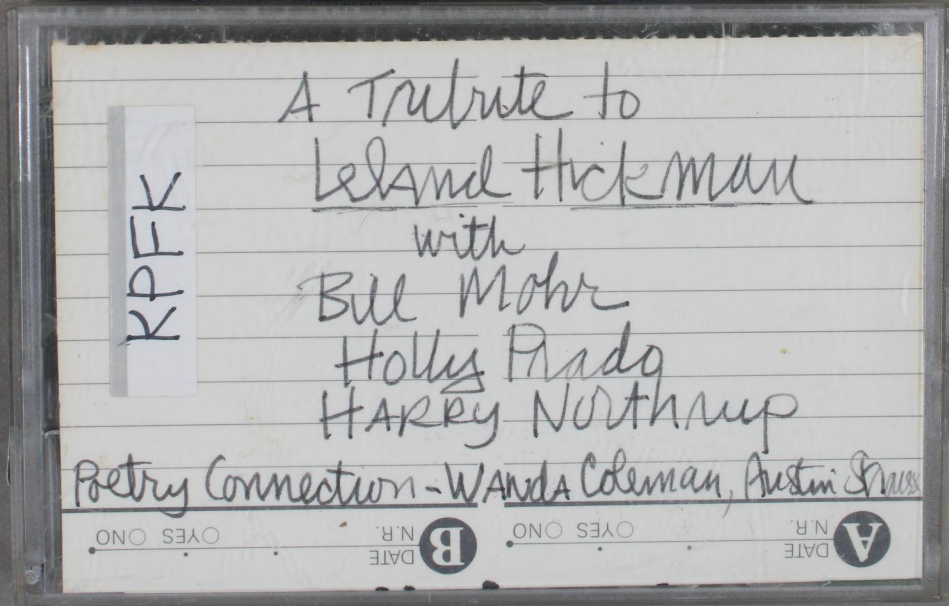 A Tribute to
Leland Hickman
with
Bill Mohr
Holly Prado
HARRY Northrup
Poetry Connection - WANDA Coleman, Austin Straus
KPFK
A DATE N.R. YES NO
B DATE N.R. YES NO